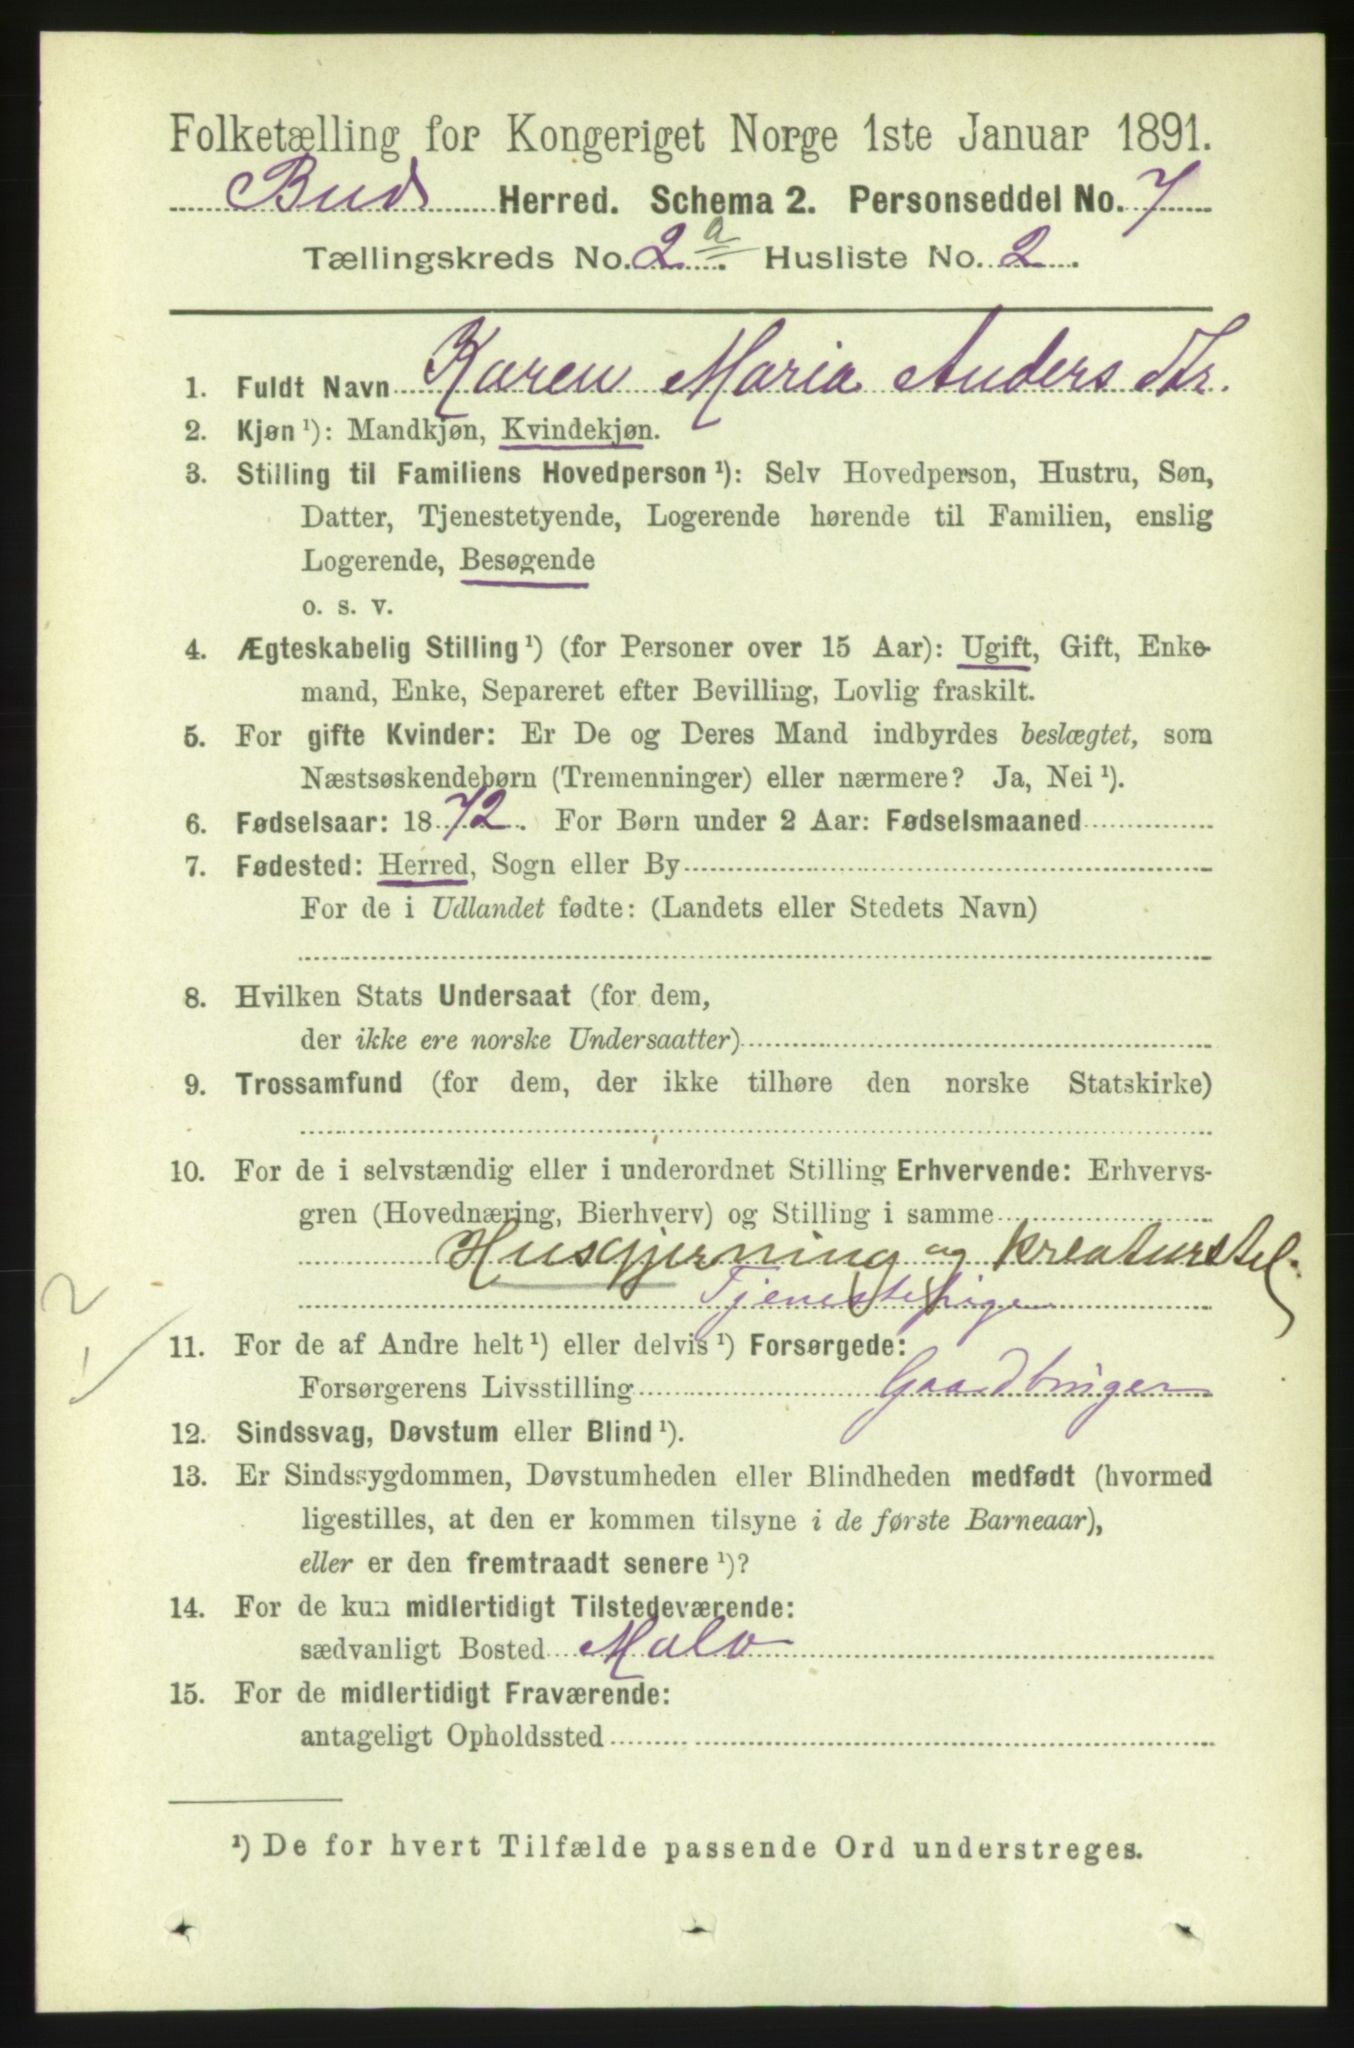 Folketælling for Kongeriget Norge 1ste Januar 1891.
Bud Herred. Schema 2. Personseddel No. 7
Tællingskreds No. 2a. Husliste No. 2.
1. Fuldt Navn Karen Maria Anders Dtr.
2. Kjøn ¹): Mandkjøn, Kvindekjøn.
3. Stilling til Familiens Hovedperson ¹): Selv Hovedperson, Hustru, Søn,
Datter, Tjenestetyende, Logerende hørende til Familien, enslig
Logerende, Besøgende
o. s. v.
4. Ægteskabelig Stilling ¹) (for Personer over 15 Aar): Ugift, Gift, Enke-
mand, Enke, Separeret efter Bevilling, Lovlig fraskilt.
5. For gifte Kvinder: Er De og Deres Mand indbyrdes beslægtet, som
Næstsøskendebørn (Tremenninger) eller nærmere? Ja, Nei ¹).
6. Fødselsaar: 1872. For Børn under 2 Aar: Fødselsmaaned
7. Fødested: Herred, Sogn eller By
For de i Udlandet fødte: (Landets eller Stedets Navn)
8. Hvilken Stats Undersaat (for dem,
der ikke ere norske Undersaatter)
9. Trossamfund (for dem, der ikke tilhøre den norske Statskirke)
10. For de i selvstændig eller i underordnet Stilling Erhvervende: Erhvervs-
gren (Hovednæring, Bierhverv) og Stilling i samme
Husgjerning og kreaturstel.
Tjenestepige
11. For de af Andre helt ¹) eller delvis ¹) Forsørgede:
Forsørgerens Livsstilling Gaardbruger
12. Sindssvag, Døvstum eller Blind ¹).
13. Er Sindssygdommen, Døvstumheden eller Blindheden medfødt (hvormed
ligestilles, at den er kommen tilsyne i de første Barneaar),
eller er den fremtraadt senere ¹)?
14. For de kun midlertidigt Tilstedeværende:
sædvanligt Bosted Malo
15. For de midlertidigt Fraværende:
antageligt Opholdssted
¹) De for hvert Tilfælde passende Ord understreges.